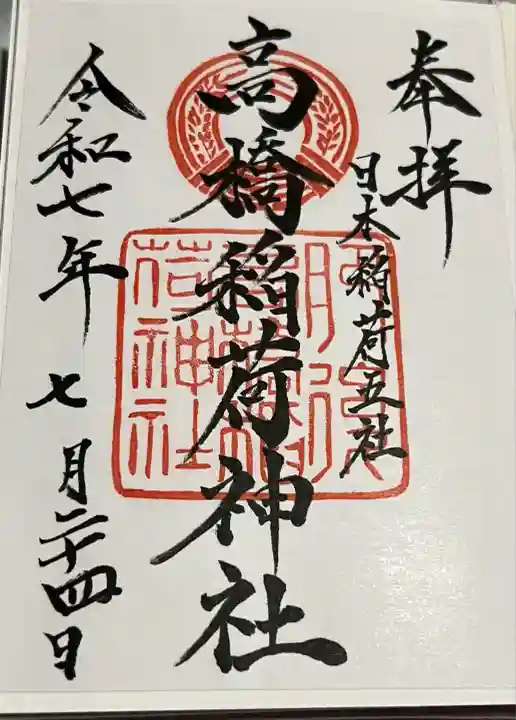 奉拝
日本稲荷五社
高橋稲荷神社
令和七年七月二十四日